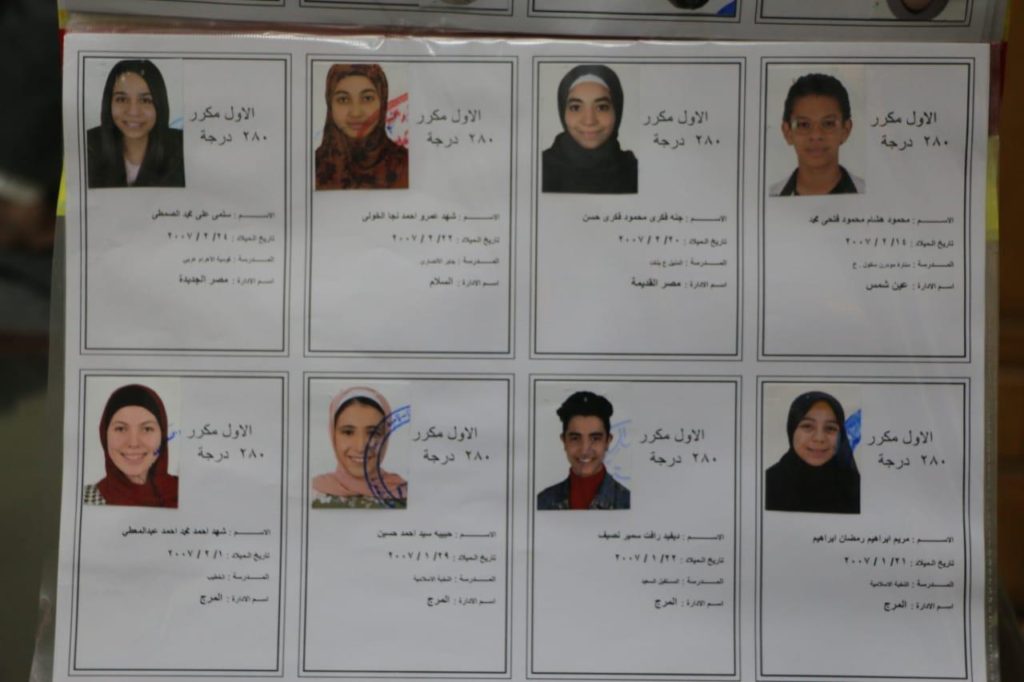 الاول مكرر
٢٨٠ درجة
الاســـم : محمود هشام محمود فتحى محمد
تاريخ الميلاد : ٢/١٤ / ٢٠٠٧
المــدرسة : منارة مودرن سكول . خ
اسم الادارة : عين شمس
الاول مكرر
٢٨٠ درجة
الاســـم : جنه فكرى محمود فكرى حسن
تاريخ الميلاد : ٢/٢٠ / ٢٠٠٧
المــدرسة : المنيل ع بنات
اسم الادارة : مصر القديمة
الاول مكرر
٢٨٠ درجة
الاســـم : شهد عمرو احمد نجا الخولى
تاريخ الميلاد : ٢/٢٢ / ٢٠٠٧
المــدرسة : جابر الانصارى
اسم الادارة : السلام
الاول مكرر
٢٨٠ درجة
الاســـم : سلمى على محمد الصمطى
تاريخ الميلاد : ٢/٢٤ / ٢٠٠٧
المــدرسة : قومية الاهرام عربى
اسم الادارة : مصر الجديدة
الاول مكرر
٢٨٠ درجة
الاســـم : مريم ابراهيم رمضان ابراهيم
تاريخ الميلاد : ١/٢١ / ٢٠٠٧
المــدرسة : النخبة الاسلامية
اسم الادارة : المرج
الاول مكرر
٢٨٠ درجة
الاســـم : ديفيد رافت سمير نصيف
تاريخ الميلاد : ١/٢٢ / ٢٠٠٧
المــدرسة : المستقبل السعيد
اسم الادارة : المرج
الاول مكرر
٢٨٠ درجة
الاســـم : حبيبه سيد احمد حسين
تاريخ الميلاد : ١/٢٩ / ٢٠٠٧
المــدرسة : النخبة الاسلامية
اسم الادارة : المرج
الاول مكرر
٢٨٠ درجة
الاســـم : شهد احمد محمد احمد عبدالمعطي
تاريخ الميلاد : ٢/١ / ٢٠٠٧
المــدرسة : الخطيب
اسم الادارة : المرج